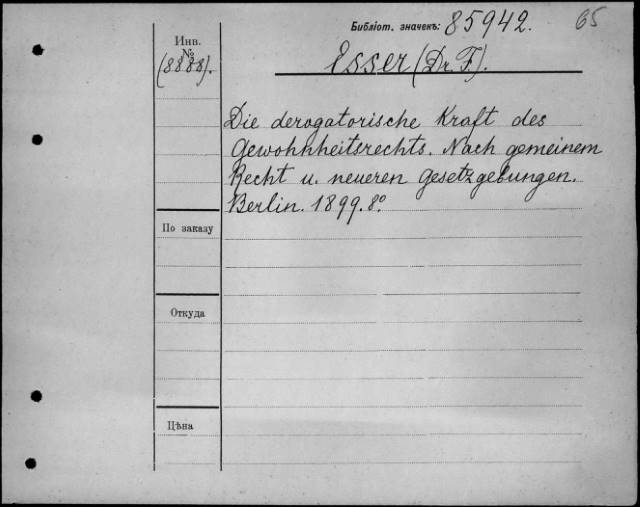 Библіот. значекъ: 85942. 65
Инв.
№
(8888).
Esser (Dr. F.).
Die derogatorische Kraft des
Gewohnheitsrechts. Nach gemeinem
Recht u. neueren Gesetzgebungen.
Berlin. 1899. 8º
По заказу
Откуда
Цѣна